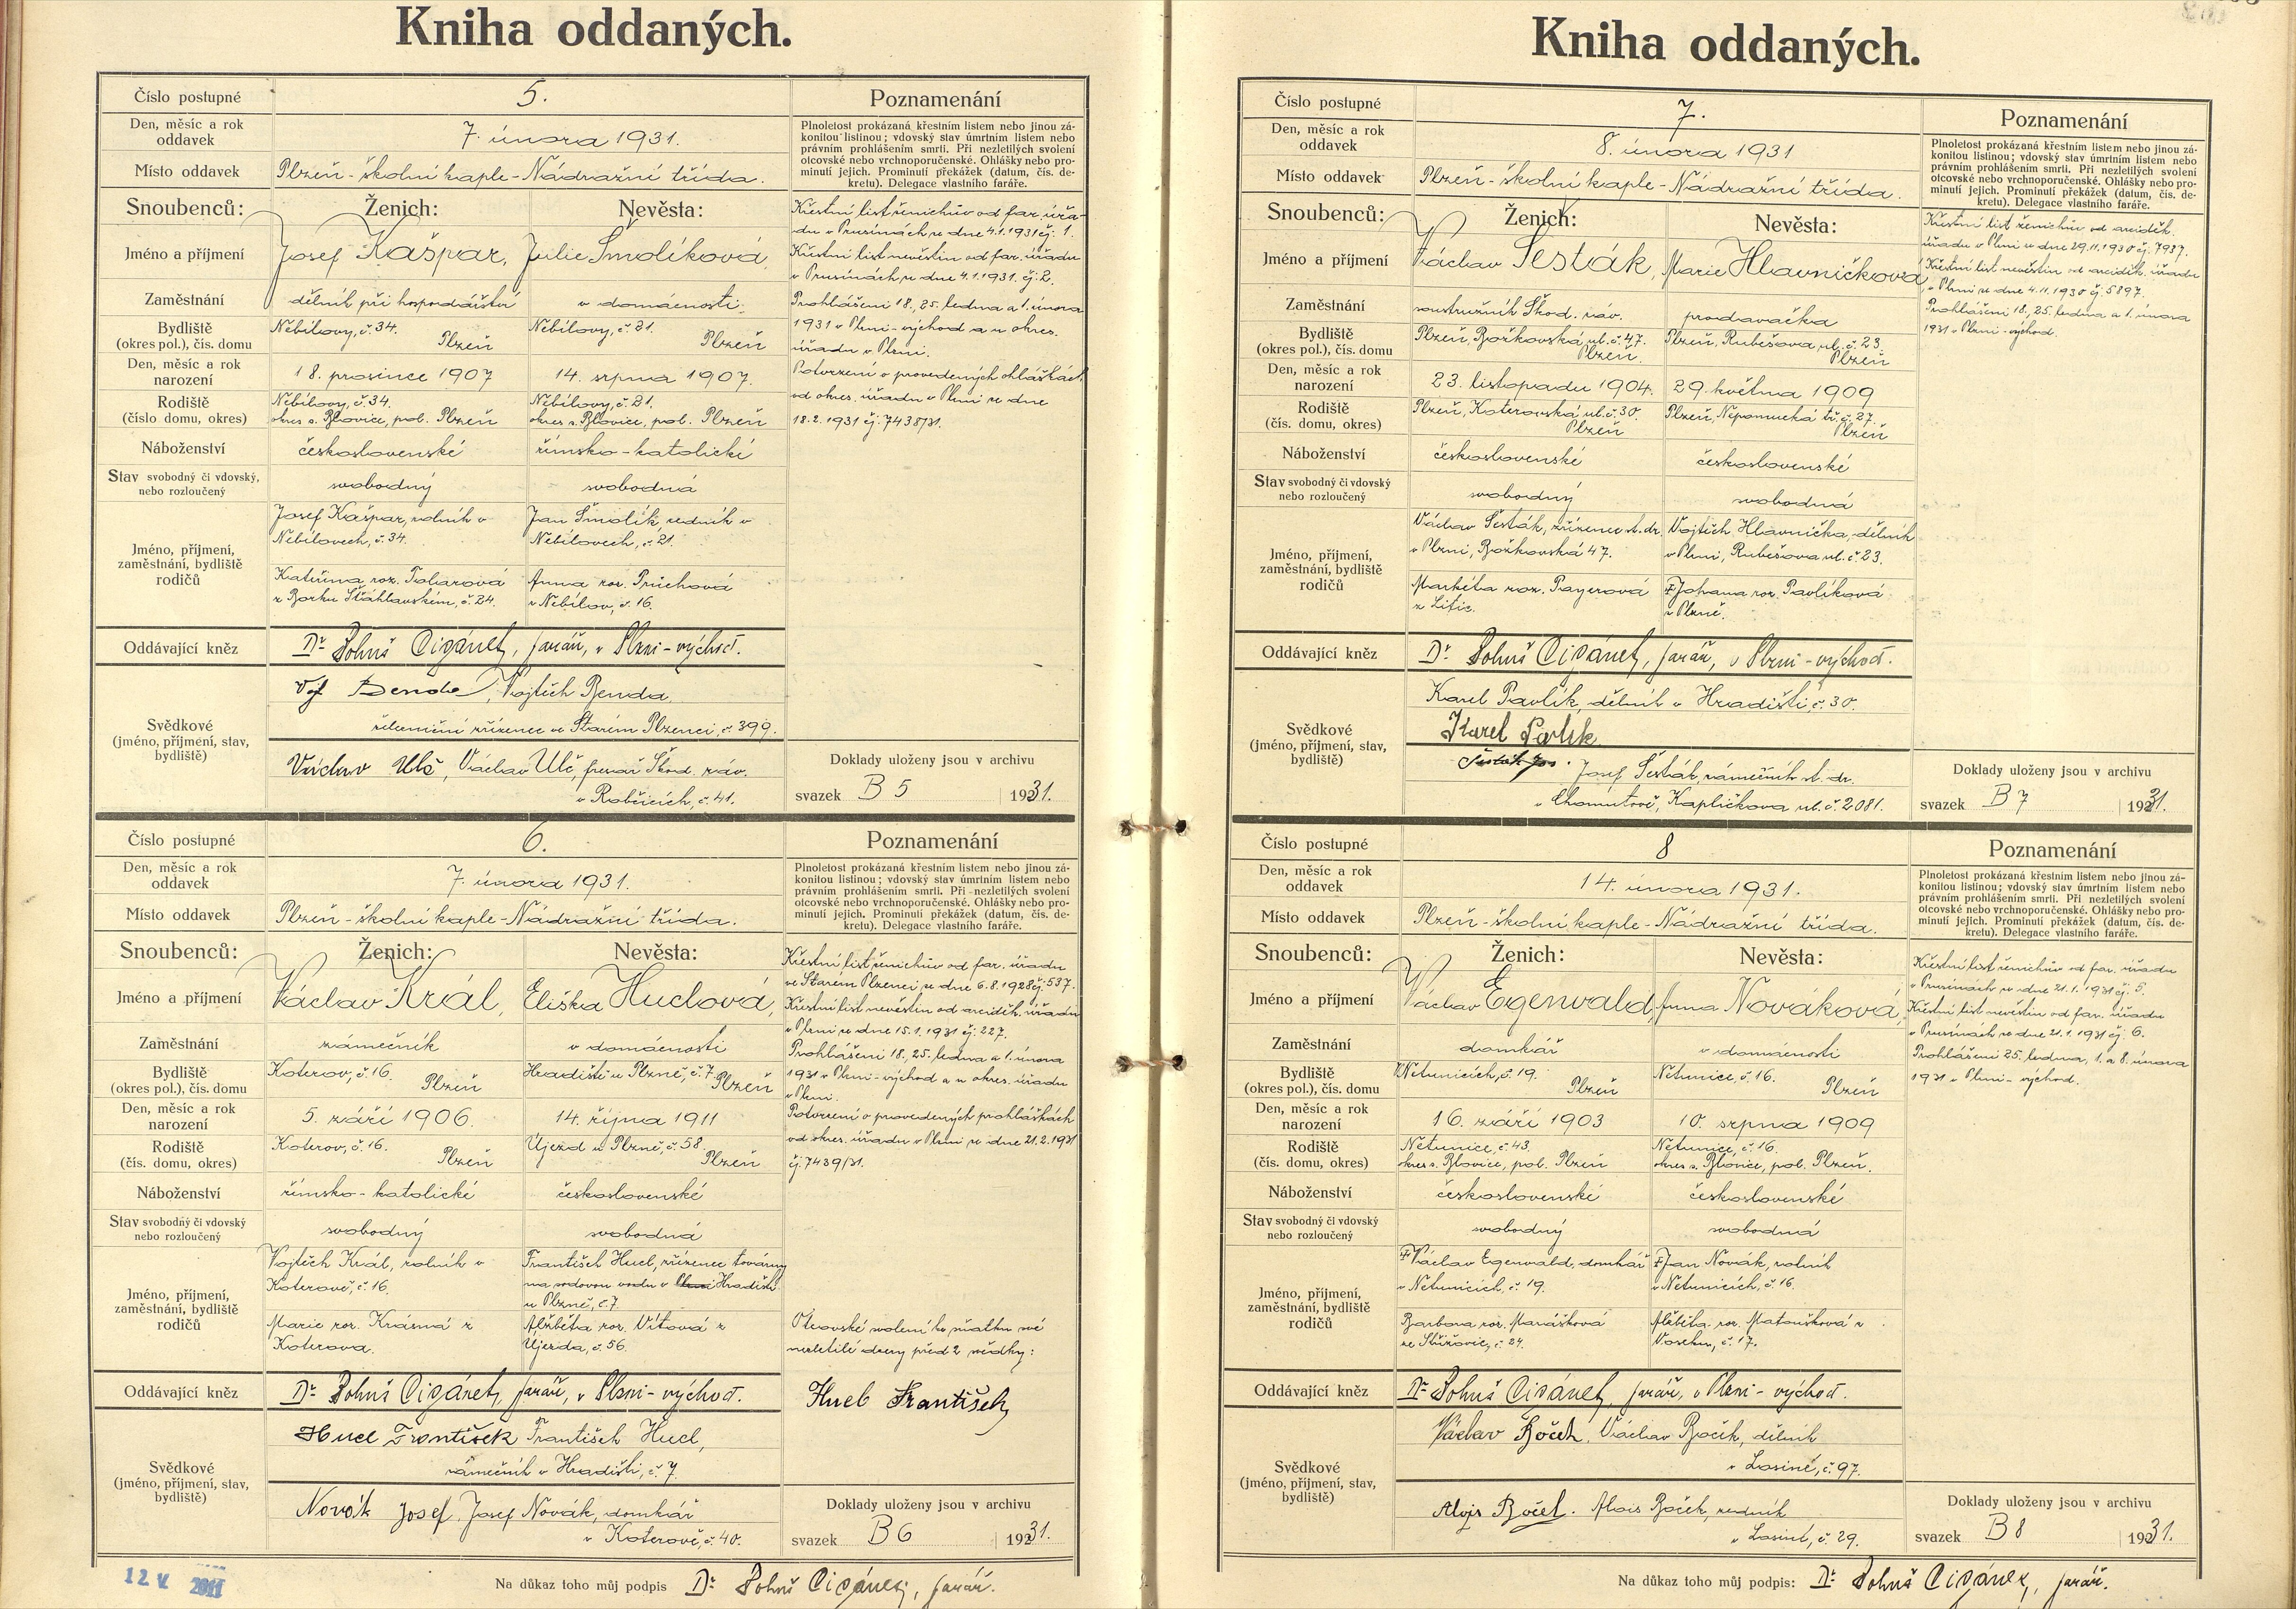 Kniha oddaných.
Číslo postupné
5.
Poznamenání
Den, měsíc a rok
oddavek
7. února 1931.
Plnoletost prokázaná křestním listem nebo jinou zá-
konitou listinou; vdovský stav úmrtním listem nebo
právním prohlášením smrti. Při nezletilých svolení
otcovské nebo vrchnoporučenské. Ohlášky nebo pro-
minutí jejich. Prominutí překážek (datum, čís. de-
kretu). Delegace vlastního faráře.
Místo oddavek
Plzeň - školní kaple - Nádražní třída.
Snoubenců:
Ženich:
Nevěsta:
Křestní list ženichův od far. úřa-
du v Prusínách ze dne 4.1.1931 čj. 1.
Křestní list nevěstin od far. úřadu
v Prusínách, ze dne 4.1.1931. čj. 2.
Prohlášeni 18., 25. ledna a 1. února
1931 v Plzni-východ a u okres.
úřadu v Plzni.
Potvrzení o provedených ohláškách
od okres. úřadu v Plzni ze dne
18.2.1931 čj. 7438/31.
Jméno a příjmení
Josef Kašpar,
Julie Smolíková,
Zaměstnání
dělník při hospodářství
v domácnosti.
Bydliště
(okres pol.), čís. domu
Nebílovy, č. 34.
Plzeň
Nebílovy, č. 21.
Plzeň
Den, měsíc a rok
narození
18. prosince 1907
14. srpna 1907.
Rodiště
(číslo domu, okres)
Nebílovy, č. 34.
okres s. Blovice, pol. Plzeň
Nebílovy, č. 21.
okres s. Blovice, pol. Plzeň
Náboženství
československé
římsko-katolické
Stav svobodný či vdovský,
nebo rozloučený
svobodný
svobodná
Jméno, příjmení,
zaměstnání, bydliště
rodičů
Josef Kašpar, rolník v
Nebílovech, č. 34.
Jan Smolík, rolník v
Nebílovech, č. 21.
Kateřina roz.
z Borku Šťáhlavském, č. 24.
Anna roz. Průchová
z Nebílov, č. 16.
Oddávající kněz
Dr. Bohuš Cigánek, farář, v Plzni-východ.
Svědkové
(jméno, příjmení, stav,
bydliště)
Voj. Benda, Vojtěch Benda,
železniční zřízenec ve Starém Plzenci, č. 399.
Václav Ulč, Václav Ulč, frézař Škod. záv.
v Robčicích, č. 41.
Doklady uloženy jsou v archivu
svazek B 5 1931.
Číslo postupné
6.
Poznamenání
Den, měsíc a rok
oddavek
7. února 1931.
Plnoletost prokázaná křestním listem nebo jinou zá-
konitou listinou; vdovský stav úmrtním listem nebo
právním prohlášením smrti. Při nezletilých svolení
otcovské nebo vrchnoporučenské. Ohlášky nebo pro-
minutí jejich. Prominutí překážek (datum, čís. de-
kretu). Delegace vlastního faráře.
Místo oddavek
Plzeň - školní kaple - Nádražní třída.
Snoubenců:
Ženich:
Nevěsta:
Křestní list ženichův od far. úřadu
ve Starém Plzenci ze dne 6.8.1928 čj. 537.
Křestní list nevěstin od arciděk. úřadu
v Plzni ze dne 15.1.1931 čj. 227.
Prohlášeni 18., 25. ledna a 1. února
1931 v Plzni-východ a u okres. úřadu
v Plzni.
Potvrzení o provedených prohláškách
od okres. úřadu v Plzni ze dne 21.2.1931
čj. 7439/31.
Jméno a příjmení
Václav Král,
Eliška Huclová,
Zaměstnání
zámečník
v domácnosti
Bydliště
(okres pol.), čís. domu
Koterov, č. 16.
Plzeň
Hradiště u Plzně, č. 7.
Plzeň
Den, měsíc a rok
narození
5. září 1906.
14. října 1911
Rodiště
(čís. domu, okres)
Koterov, č. 16.
Plzeň
Újezd u Plzně, č. 58.
Plzeň
Náboženství
římsko-katolické
československé
Stav svobodný či vdovský
nebo rozloučený
svobodný
svobodná
Jméno, příjmení,
zaměstnání, bydliště
rodičů
Vojtěch Král, rolník v
Koterově, č. 16.
František Hucl, zřízenec továrny
na sodovou vodu v Plzni Hradišti
u Plzně, č. 7.
Marie roz. Krásná z
Koterova.
Alžběta roz. Vítová z
Újezda, č. 56.
Otcovské svolení ke sňatku své
nezletilé dcery před 2 svědky:
Hucl František
Oddávající kněz
Dr. Bohuš Cigánek, farář, v Plzni-východ.
Svědkové
(jméno, příjmení, stav,
bydliště)
Hucl František František Hucl,
zámečník v Hradišti, č. 7.
Novák Josef. Josef Novák, domkář
v Koterově, č. 40.
Doklady uloženy jsou v archivu
svazek B 6 1931.
12. V. 2011
Na důkaz toho můj podpis Dr. Bohuš Cigánek, farář.
Kniha oddaných.
Číslo postupné
7.
Poznamenání
Den, měsíc a rok
oddavek
8. února 1931
Plnoletost prokázaná křestním listem nebo jinou zá-
konitou listinou; vdovský stav úmrtním listem nebo
právním prohlášením smrti. Při nezletilých svolení
otcovské nebo vrchnoporučenské. Ohlášky nebo pro-
minutí jejich. Prominutí překážek (datum, čís. de-
kretu). Delegace vlastního faráře.
Místo oddavek
Plzeň - školní kaple - Nádražní třída.
Snoubenců:
Ženich:
Nevěsta:
Křestní list ženichův od arciděk.
úřadu v Plzni ze dne 29.11.1930 čj. 7937.
Křestní list nevěstin od arciděk. úřadu
v Plzni ze dne 4.11.1930 čj. 5897.
Prohlášeni 18., 25. ledna a 1. února
1931 v Plzni-východ.
Jméno a příjmení
Václav Šesták,
Marie Hlavničková
Zaměstnání
soustružník Škod. záv.
prodavačka
Bydliště
(okres pol.), čís. domu
Plzeň, Božkovská ul. č. 47.
Plzeň.
Plzeň, Rubešova ul. č. 23.
Plzeň
Den, měsíc a rok
narození
23. listopadu 1904.
29. května 1909
Rodiště
(čís. domu, okres)
Plzeň, Koterovská ul. č. 30.
Plzeň
Plzeň, Nepomucká tř. č. 27.
Plzeň
Náboženství
československé
československé
Stav svobodný či vdovský
nebo rozloučený
svobodný
svobodná
Jméno, příjmení,
zaměstnání, bydliště
rodičů
Václav Šesták, zřízenec st. dr.
v Plzni, Božkovská 47.
Vojtěch Hlavnička, dělník
v Plzni, Rubešova ul. č. 23.
Markéta roz. Payerová
z Litic.
†Johana roz. Pavlíková
z Plzně.
Oddávající kněz
Dr. Bohuš Cigánek, farář, v Plzni-východ.
Svědkové
(jméno, příjmení, stav,
bydliště)
Karel Pavlík, dělník v Hradišti, č. 30.
Karel Pavlík
Šesták Jos. Josef Šesták, zámečník st. dr.
v Chomutově, Kapličkova ul. č. 2081.
Doklady uloženy jsou v archivu
svazek B 7 1931.
Číslo postupné
8
Poznamenání
Den, měsíc a rok
oddavek
14. února 1931.
Plnoletost prokázaná křestním listem nebo jinou zá-
konitou listinou; vdovský stav úmrtním listem nebo
právním prohlášením smrti. Při nezletilých svolení
otcovské nebo vrchnoporučenské. Ohlášky nebo pro-
minutí jejich. Prominutí překážek (datum, čís. de-
kretu). Delegace vlastního faráře.
Místo oddavek
Plzeň - školní kaple - Nádražní třída.
Snoubenců:
Ženich:
Nevěsta:
Křestní list ženichův od far. úřadu
v Prusínách ze dne 21.1.1931 čj. 5.
Křestní list nevěstin od far. úřadu
v Prusínách ze dne 21.1.1931 čj. 6.
Prohlášeni 25. ledna, 1. a 8. února
1931 v Plzni-východ.
Jméno a příjmení
Václav Egenvald,
Anna Nováková,
Zaměstnání
domkář
v domácnosti
Bydliště
(okres pol.), čís. domu
Netunicích, č. 19.
Plzeň
Netunice, č. 16.
Plzeň
Den, měsíc a rok
narození
16. září 1903
10. srpna 1909
Rodiště
(čís. domu, okres)
Netunice, č. 43.
okres s. Blovice, pol. Plzeň
Netunice, č. 16.
okres s. Blovice, pol. Plzeň.
Náboženství
československé
československé
Stav svobodný či vdovský
nebo rozloučený
svobodný
svobodná
Jméno, příjmení,
zaměstnání, bydliště
rodičů
†Václav Egenvald, domkář
v Netunicích, č. 19.
†Jan Novák, rolník
v Netunicích, č. 16.
Barbora roz. Marášková
ze Střížovic, č. 24.
Alžběta roz. Matoušková z
Voseku, č. 17.
Oddávající kněz
Dr. Bohuš Cigánek, farář, v Plzni-východ.
Svědkové
(jméno, příjmení, stav,
bydliště)
Václav Boček. Václav Boček, dělník
v Losiné, č. 97.
Alojs Boček. Alois Boček, rolník
v Losiné, č. 29.
Doklady uloženy jsou v archivu
svazek B 8 1931.
Na důkaz toho můj podpis: Dr. Bohuš Cigánek, farář.